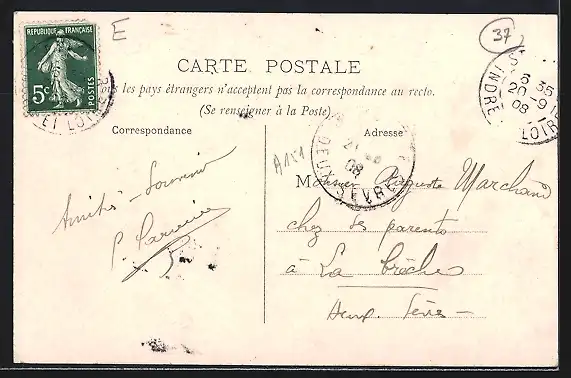 RÉPUBLIQUE FRANÇAISE
5c
POSTES
E
37
ET LOIRE
CARTE POSTALE
les pays étrangers n'acceptent pas la correspondance au recto.
(Se renseigner à la Poste)
INDRE
6 35
20 -9
08
LOIRE
Correspondance
Adresse
A151
21
08
DEUX-SÈVRES
Amitiés - Souvenir
Monsieur Auguste Marchand
chez ses parents
à La Crèche
Deux. Sèvres -